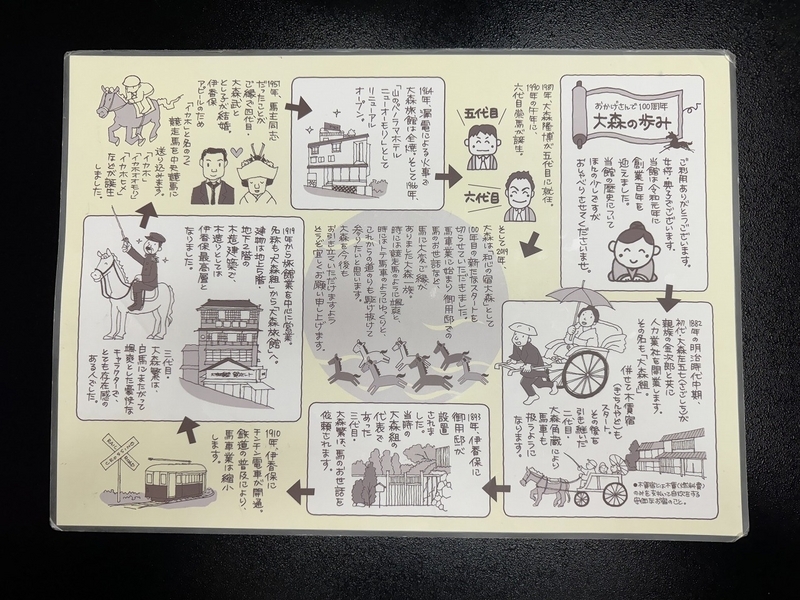 おかげさんで100周年
大森の歩み
ご利用ありがとうございます。
女将・典子でございます。
当館は令和元年に
創業百年を
迎えました。
当館の歴史について
ほんの少しですが
おしゃべりさせてくださいませ。
1882年の明治時代中期、
初代・大森左五七(さごしち)が
親族の金次郎と共に
人力業社を開業します。
その名も「大森組」。
併せて木賃宿
(きちんやど)も
スタート。
その後を
引き継いだ
二代目・
大森角蔵により
馬車も
扱うように
●木賃宿には木賃(燃料費)
のみを支払って自炊をする
安価なお宿のこと。
1893年、伊香保に
御用邸が
設置
されま
した。
当時の
大森組の
代表で
あった
三代目・
大森繁は、馬のお世話を
依頼されます。
1910年、伊香保に
チンチン電車が開通。
鉄道の普及により、
馬車業は縮小
します。
RAIL ROAD
CROSSING
三代目・
大森繁は、
白馬にまたがって
颯爽とした豪快な
キャラクターで、
とても存在感の
ある人でした。
1919年から旅館業を中心に営業。
名称も「大森組」から「大森旅館」へ。
建物は地上5階・
地下2階の
木造建築で、
木造りとしては
伊香保最高層と
なりました。
1951年、馬主同志
だったことが
ご縁で四代目・
大森武と
とし子が結婚。
伊香保
アピールのため
「イカホ」と名のつく
競走馬を中央競馬に
送り込みます。
「イカホ」
「イカホオオモリ」
「イカホヒメ」
などが誕生
しました。
1964年、漏電による火事で
大森旅館は全焼。そして1966年、
「山のパノラマホテル
ニューオーモリ」として
リニューアル
オープン。
五代目
六代目
1989年、大森隆博が五代目に就任。
1990年の午年に、
六代目崇馬が誕生。
そして2019年、
大森は「和心の宿 大森」として
100年目の新たなスタートを
切らせていただきました。
馬車業に始まり、御用邸での
馬のお世話など、
馬に大変ご縁が
ありました大森一族。
時には競走馬のように颯爽と、
時にはトテ馬車のようにゆっくりと、
これからの道のりも駆け抜けて
参りたいと思います。
大森を今後も
お引き立ていただけますよう
どうぞ宜しくお願い申し上げます。